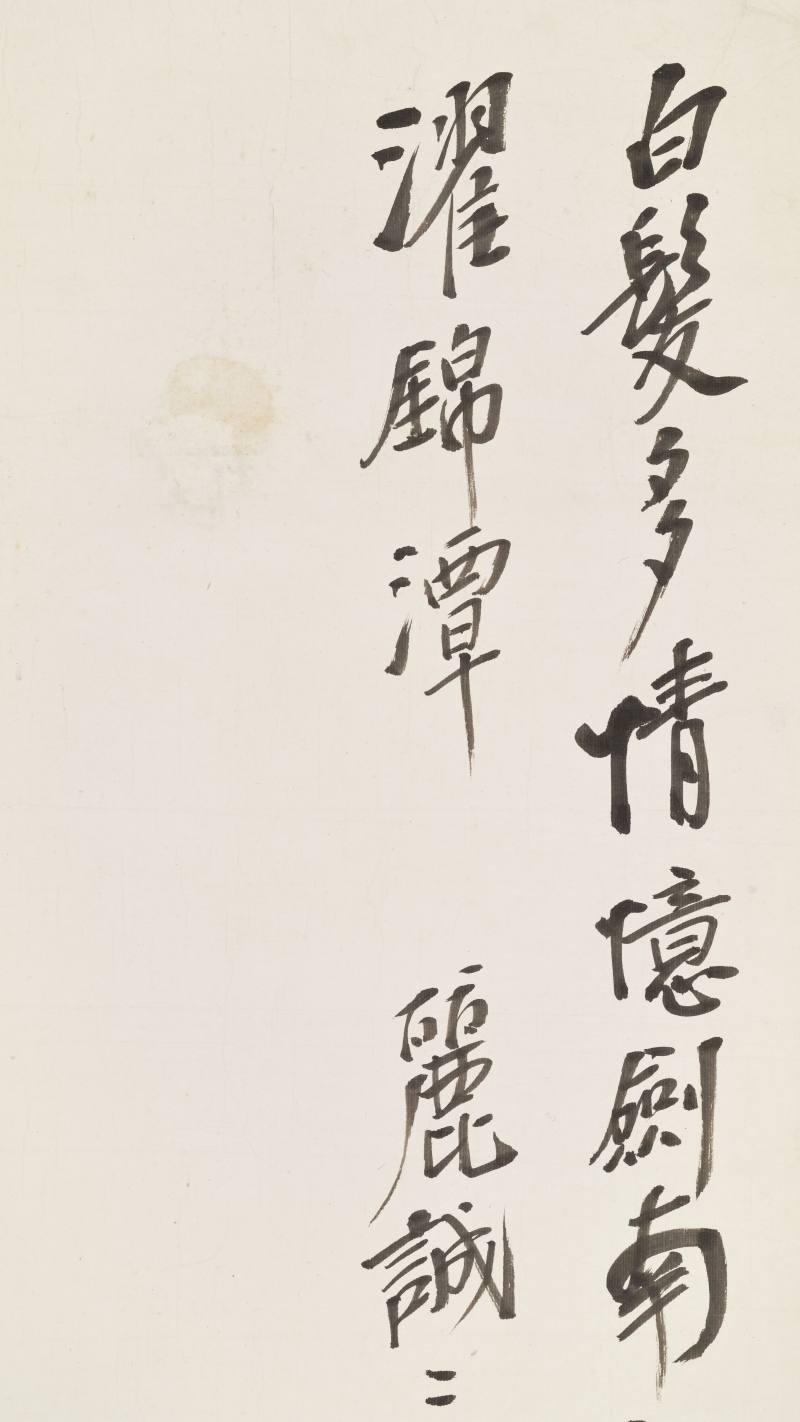 白髮多情憶劍南
濯錦潭 麗誠二